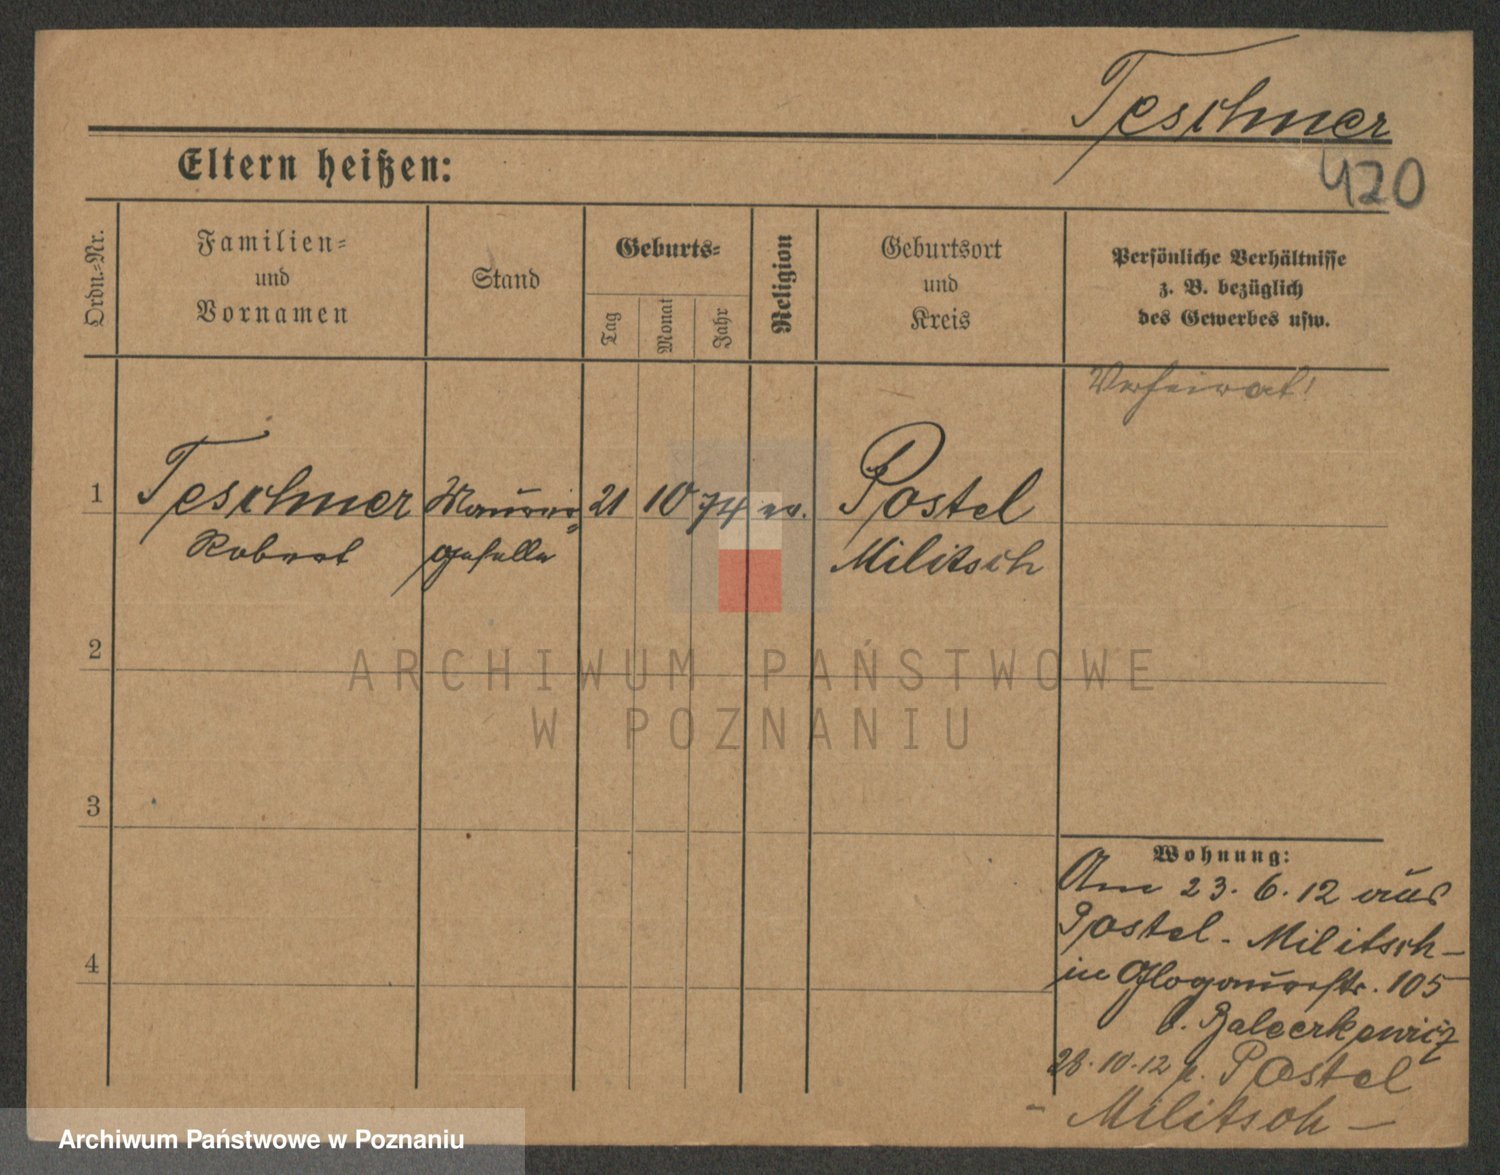 Teschner
420
Eltern heißen:
Ordn.-Nr.
Familien-
und
Vornamen
Stand
Geburts-
Tag
Monat
Jahr
Religion
Geburtsort
und
Kreis
Persönliche Verhältnisse
z. B. bezüglich
des Gewerbes usw.
Verheirat!
1 Teschner Maurer- 21 10 74 ev. Postel
Robert geselle Militsch
2
3
4
Wohnung:
Am 23.6.12 aus
Postel - Militsch -
in Glogauerstr. 105
b. Balcerkewicz
28.10.12 n. Postel
- Militsch -
ARCHIWUM PAŃSTWOWE
W POZNANIU
Archiwum Państwowe w Poznaniu